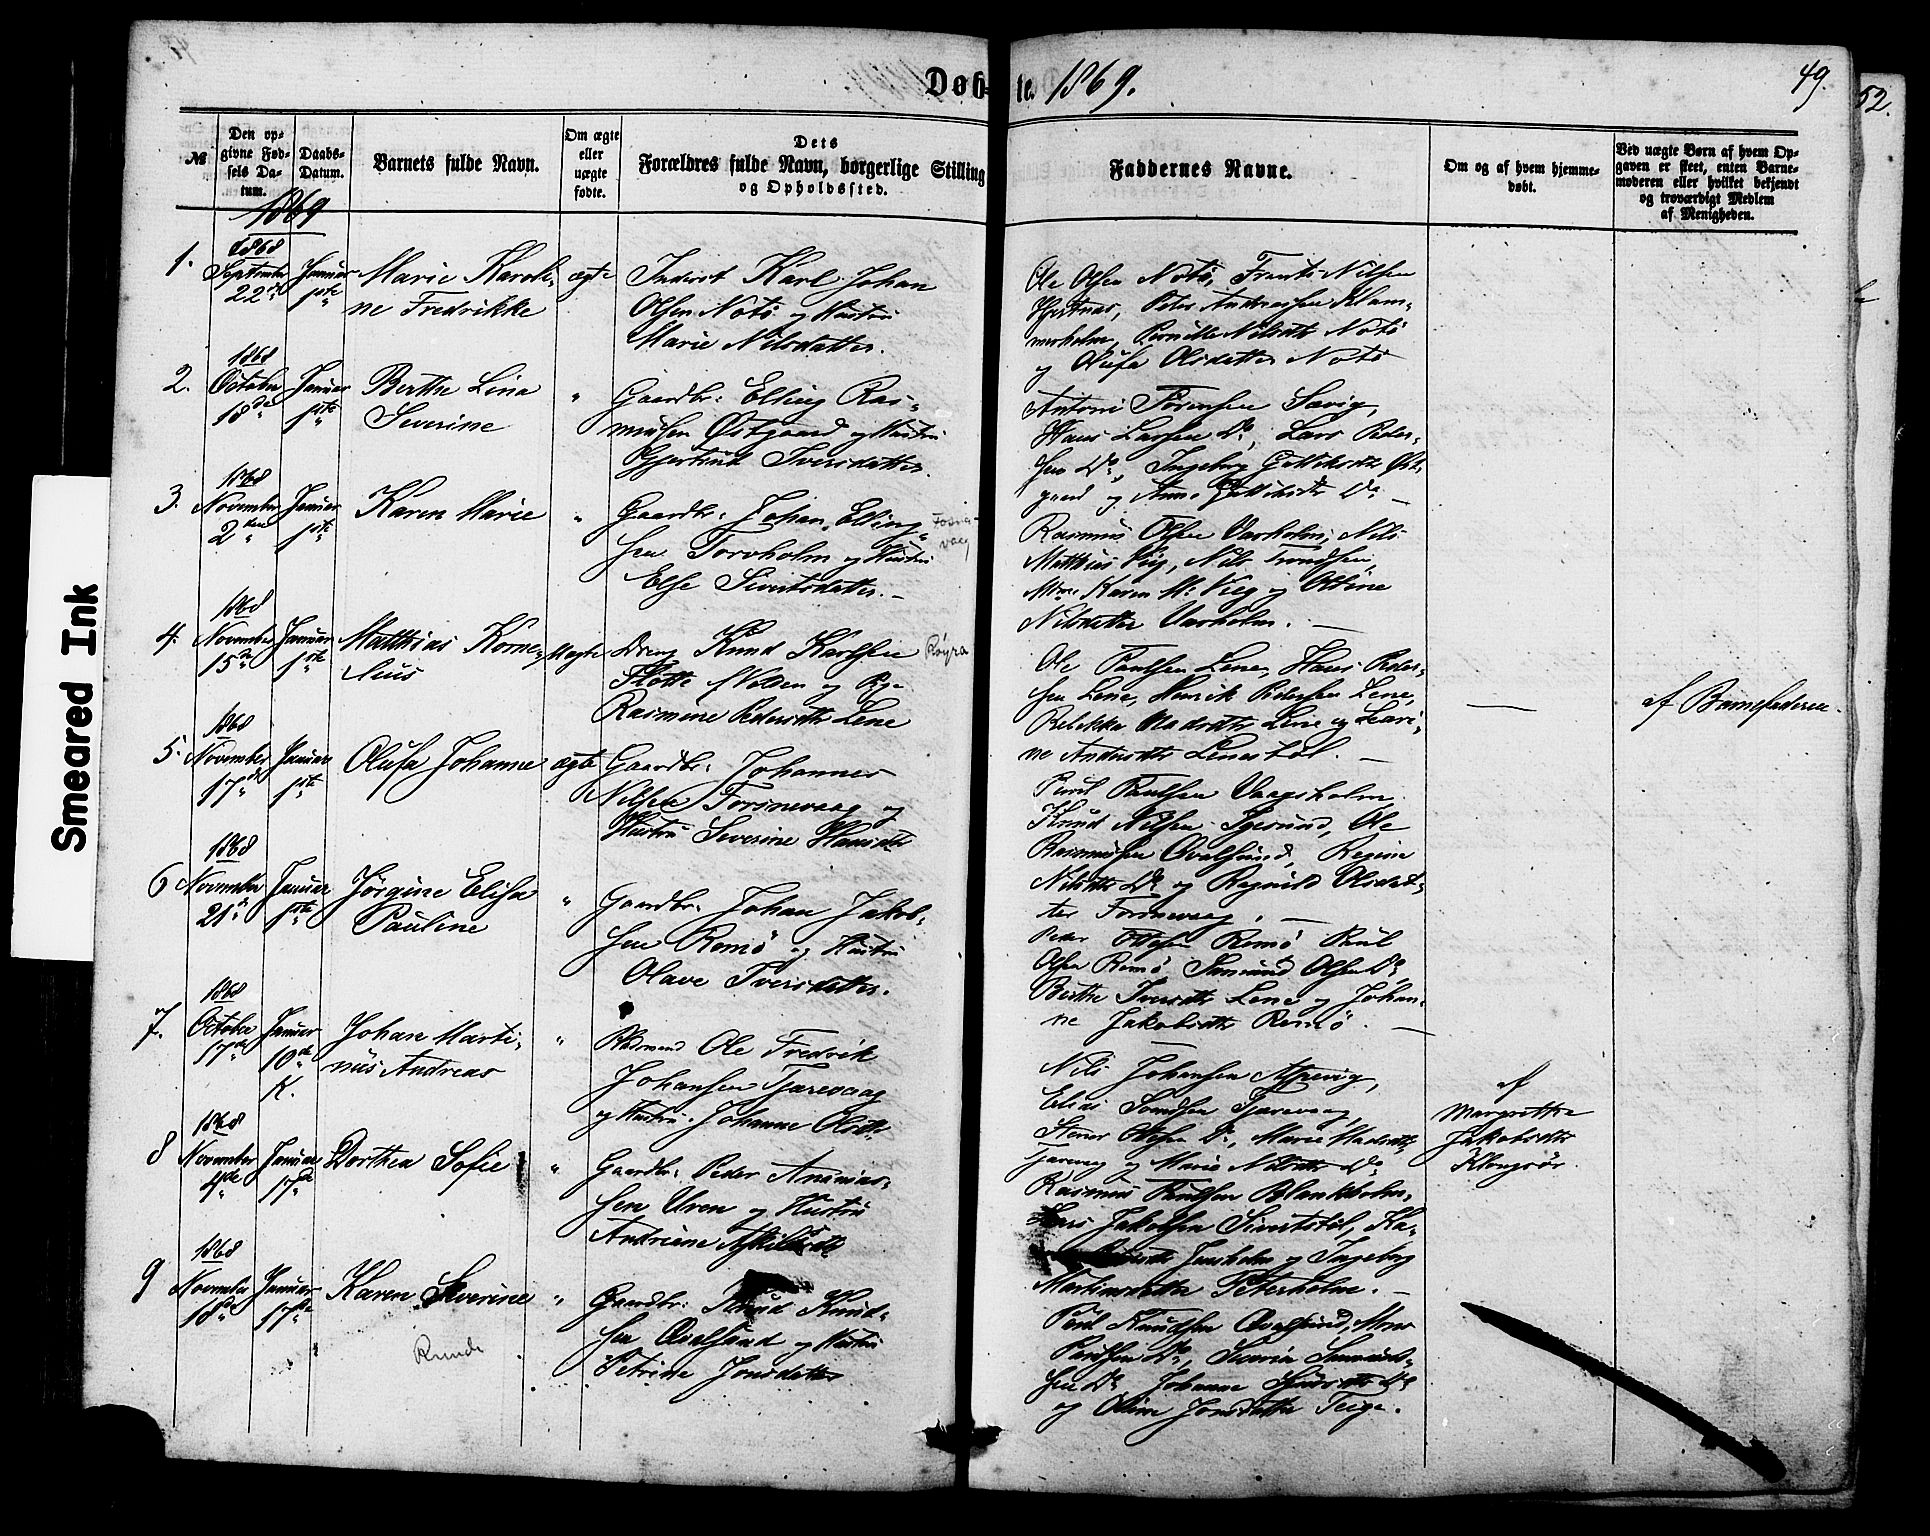 Døbte. 1869.
49.
52.
Smeared Ink
№
Den op-
givne Fød-
sels Da-
tum.
Daabs-
Datum.
Barnets fulde Navn.
Om ægte
eller
uægte
fødte.
Dets
Forældres fulde Navn, borgerlige Stilling
og Opholdssted.
Faddernes Navne.
Om og af hvem hjemme-
døbt.
Ved uægte Børn af hvem Op-
gaven er skeet, enten Barne-
moderen eller hvilket bekjendt
og troværdigt Medlem
af Menigheden.
1869
1.
1868
September
22de
Januar
1ste
Marie Karoli-
ne Fredrikke
ægte
Inderst Karl Johan
Olsen Notø og Hustru
Marie Nilsdatter.
Ole Olsen Notø, Frants Nilsen
Peter Andreassen Flam-
merholm, Pernille Nilsdtr Notø
og Olufa Olsdatter Notø
2.
1868
October
18de
Januar
1ste
Berthe Lina
Severine
"
Gaardbr: Elling Ras-
musen Østgaard og Hustru
Gjertrud Iversdatter.
Antoni Sørensen Savig,
Hans Larsen Do, Lars Peder-
sen Do, Ingeborg Øst-
gaard og Anne Do —
3.
1868
November
2den
Januar
1ste
Karen Marie
"
Gaardbr: Johan Elling-
sen Torvholm og Hustru
Else Sivertsdatter. —
Fosna-
vaag
Rasmus Olsen Varholm, Nils
Matthias Vig, Nils Trondsen,
Karen M: Vig og Oline
Nilsdatter Varholm. —
4.
1868
November
15de
Januar
1ste
Matthias Korne-
lius
uægte
Dreng Knud Karlsen
Flotte i Volden og Pge
Rasmine Pedersdtr Lene
Røyra
Ole Paulsen Lene, Hans Peder-
sen Lene, Henrik Pedersen Lene,
Rebekka Madsdtr Lene og
ne Andersdtr Lenestøl. —
—
af Barnefaderen.
5.
1868
November
17de
Januar
1ste
Olufa Johanne
ægte
Gaardbr: Johannes
Nilsen Forsnevaag og
Hustru Severine Hansdtr
Poul Paulsen Vaagsholm,
Knud Nilsen Igesund, Ole
Rasmussen Qvalsund, Regine
Nilsdtr Do og Ragnild Olsdat-
ter Forsnevaag. —
6
1868
November
21de
Januar
1ste
Jørgine Elisa
Pauline
"
Gaardbr: Johan Jakob-
sen Remø og Hustru
Olave Iversdatter.
Peder Ottesen Remø Poul
Olsen Remø Simund Olsen Do,
Berthe Iversdtr Lene og Johan-
ne Jakobsdtr Remø. —
7.
1868
October
17de
Januar
10de
K.
Johan Marti-
nus Andreas
"
Ole Fredrik
Johansen Tjørevaag
og Hustru: Johanne Olsdtr
Nils Johansen Aspevig,
Elias Tjørevaag,
Stener Do, Marie Madsdtr
Tjørevag og Marie Nilsdtr Do
af
Margrethe
Jakobsdtr
8
1868
November
4de
Januar
17de
Dorthea Sofie
"
Gaardbr: Peder Ananias-
sen Uren og Hustru
Andrine
Rasmus Paulsen Blankholm,
Lars Jakobsen Sivertstøl, Ka-
og Ingeborg
Martinsdatter Peterholm. —
9
1868
November
18de
Januar
17de
Karen Severine
Runde
"
Gaardbr: Knud Knud-
sen Qvalsund og Hustru
Petrine Jonsdatter
Poul Knudsen Qvalsund,
Paulsen Do, Severin
sen Do Johanne Do
og Oline Jonsdatter Teige.